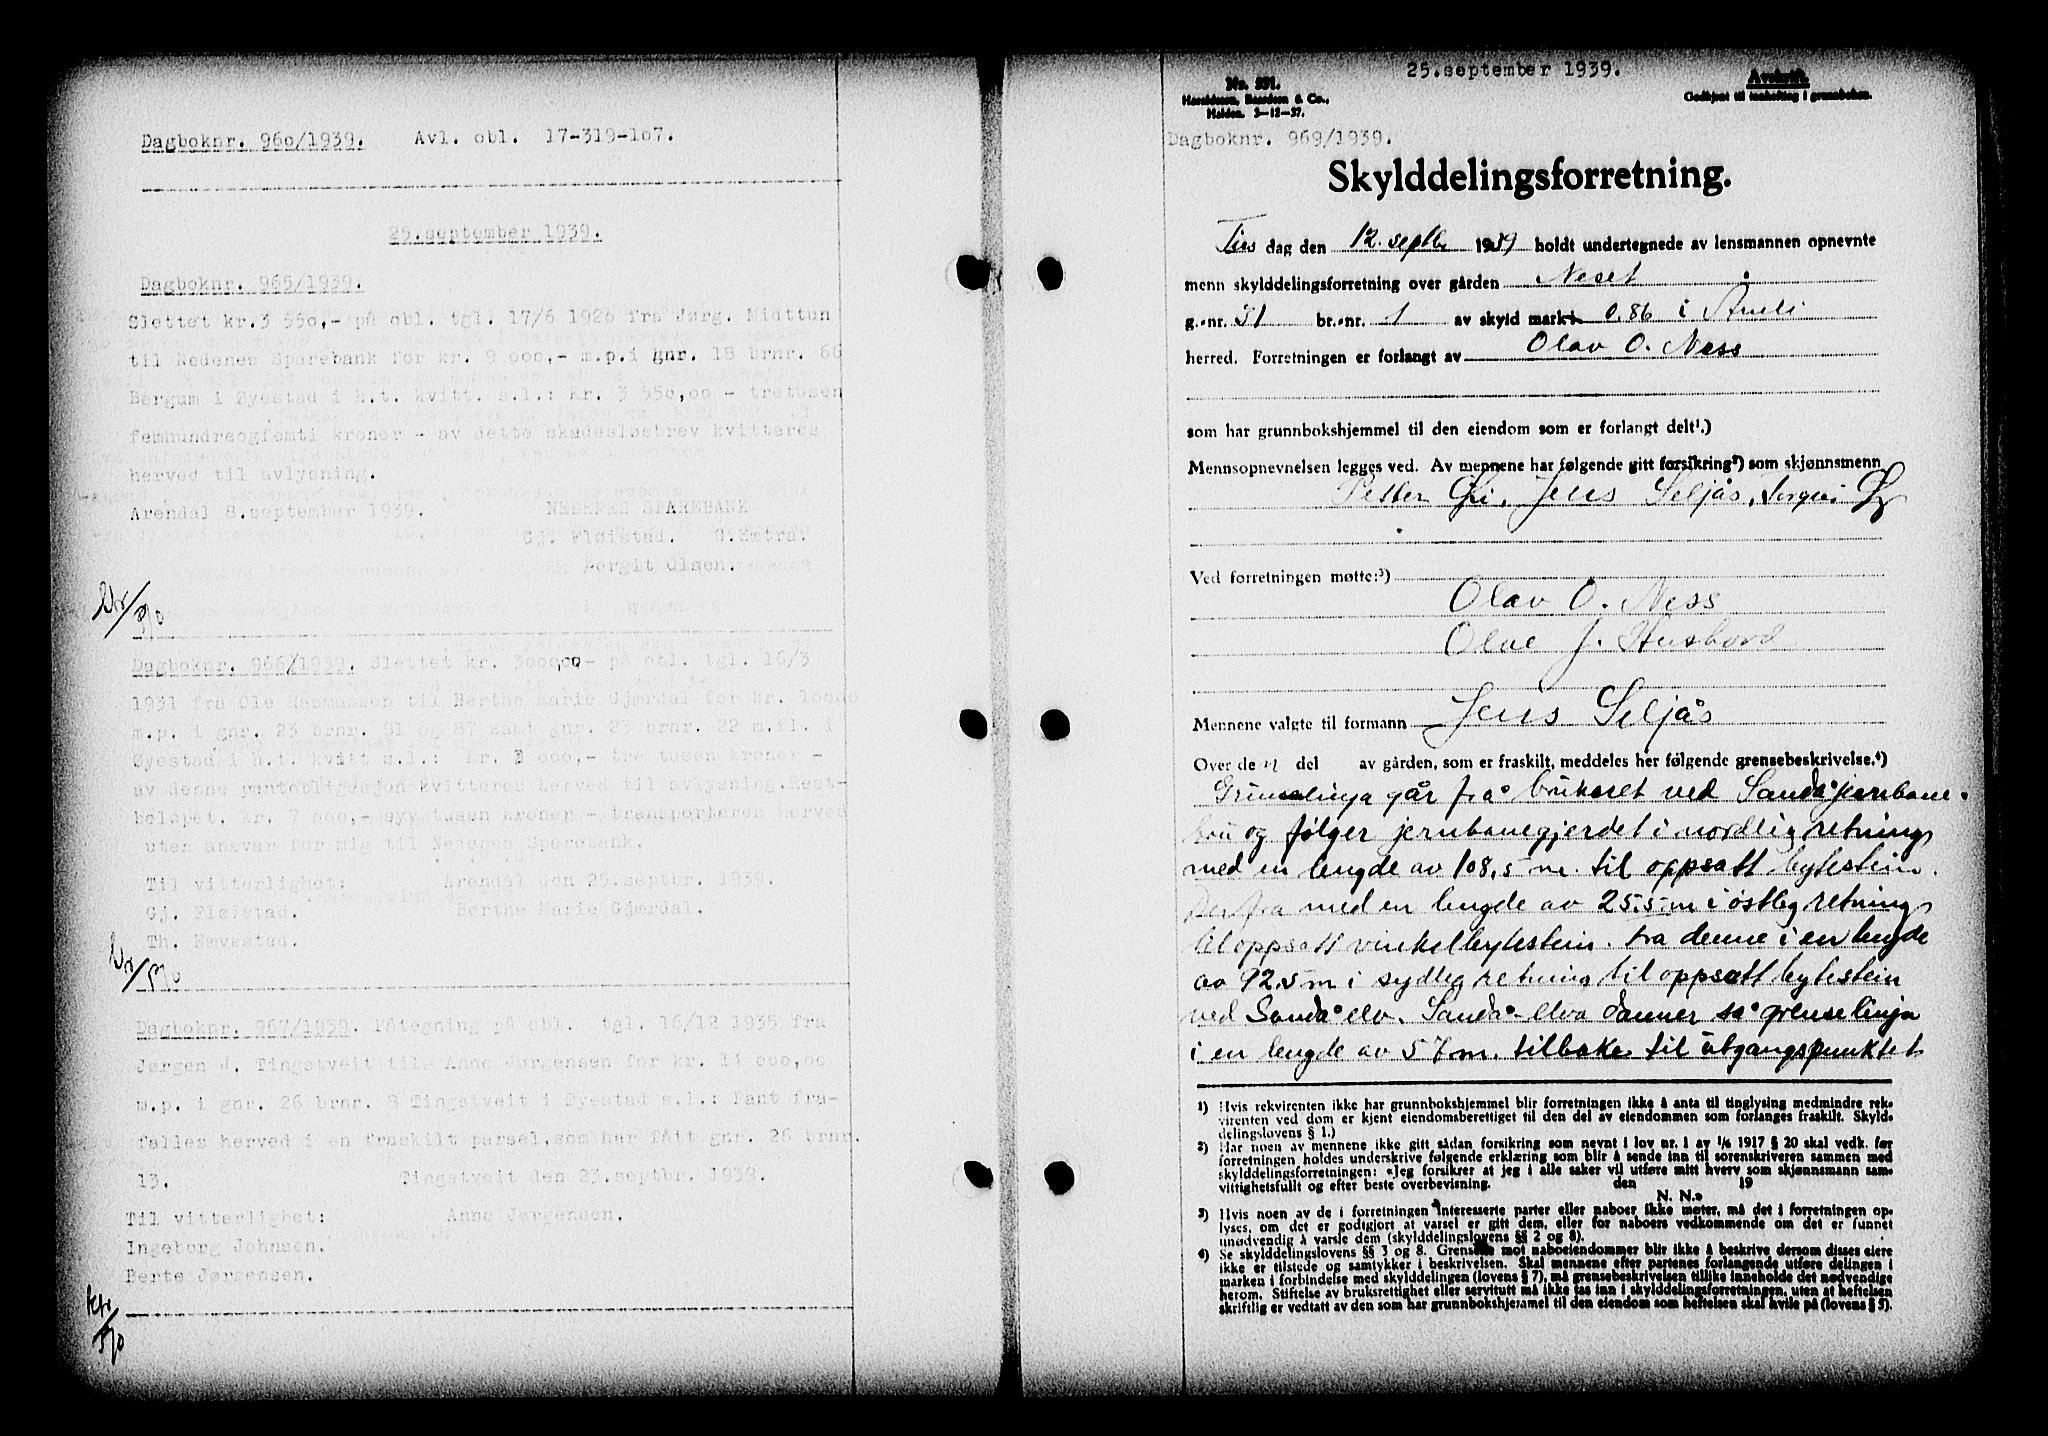 Dagboknr. 960/1939. Avl. obl. 17-319-107.
25.september 1939.
Dagboknr. 965/1939.
Slettet kr.3 550,- på obl. tgl. 17/6 1926 fra Jørg. Midttun
til Nedenes Sparebank for kr. 9 000,- m.p.i gnr. 18 brnr. 66
Bergum i Øyestad i h.t. kvitt. s.l.: Kr. 3 550,00 - tretusen
femhundreogfemti kroner - av dette skadesløsbrev kvitteres
herved til avlysning.
Arendal 8.september 1939. NEDENES SPAREBANK
Gj. Fløistad.
Torgit Olsen.
Dagboknr. 966/1939. Slettet kr. 3000,00- på obl. tgl. 16/3
1931 fra Ole Rasmussen til Berthe Marie Gjærdal for kr. 10000
m.p. i gnr. 23 brnr. 81 og 87 samt gnr. 23 brnr. 22 m.fl. i
Øyestad i h.t. kvitt s.l.: Kr. 3 000,- tre tusen kroner -
av denne pantobligasjon kvitteres herved til avlysning.Rest-
beløpet, kr. 7 000,- syv tusen kroner - transporteres herved
uten ansvar for mig til Nedenes Sparebank.
Til vitterlighet: Arendal den 25.septbr. 1939.
Gj. Fløistad. Berthe Marie Gjærdal.
Th. Nævestad.
Dagboknr. 967/1939. Påtegning på obl. tgl. 16/12 1935 fra
Jørgen J. Tingstveit til Anne Jørgensen for kr. 14 000,00
m.p. i gnr. 26 brnr. 8 Tingstveit i Øyestad s.l.: Pant fra-
falles herved i en fraskilt parsel,som har fått gnr. 26 brnr.
13. Tingstveit den 23.septbr. 1939.
Til vitterlighet: Anne Jørgensen.
Ingeborg Johnsen.
Berte Jørgensen.
25.september 1939.
No. 551. Avskrift.
Haraldssen, Baardsen & Co., Godkjent til innhefting i grunnboken.
Halden. 3-12-37.
Dagboknr. 969/1939.
Skylddelingsforretning.
Tirs dag den 12. septbr 1939 holdt undertegnede av lensmannen opnevnte
menn skylddelingsforretning over gården Neset
g.-nr. 31 br.-nr. 1 av skyld mark 0.86 i Åmli
herred. Forretningen er forlangt av Olav O. Ness
som har grunnbokshjemmel til den eiendom som er forlangt delt¹.)
Mennsopnevnelsen legges ved. Av mennene har følgende gitt forsikring²) som skjønnsmenn
Petter Jens Seljås,
Ved forretningen møtte:³)
Olav O. Ness
Olav J. Husbord
Mennene valgte til formann Jens Seljås
Over den del av gården, som er fraskilt, meddeles her følgende grensebeskrivelse.⁴)
Grenselinja går frå brukaret ved Sandå jernbane-
bru og følger jernbanegjerdet i nordlig retning
med en lengde av 108,5 m. til oppsatt bytestein.
Derfra med en lengde av 25.5 m i østleg retning
til oppsatt vinkelbytestein. Fra denne i en lengde
av 92.5 m i sydleg retning til oppsatt bytestein
ved Sandå elv. Sandå-elva danner så grenselinja
i en lengde av 57 m. tilbake til utgangspunktet
1) Hvis rekvirenten ikke har grunnbokshjemmel blir forretningen ikke å anta til tinglysing medmindre rek-
virenten ved dom er kjent eiendomsberettiget til den del av eiendommen som forlanges fraskilt. Skyld-
delingslovens § 1.)
2) Har noen av mennene ikke gitt sådan forsikring som nevnt i lov nr. 1 av 1/6 1917 § 20 skal vedk. før
forretningen holdes underskrive følgende erklæring som blir å sende inn til sorenskriveren sammen med
skylddelingsforretningen: «Jeg forsikrer at jeg i alle saker vil utføre mitt hverv som skjønnsmann sam-
vittighetsfullt og efter beste overbevisning. den 19
N. N.»
3) Hvis noen av de i forretningen interesserte parter eller naboer ikke møter, må det i forretningen op-
lyses, om det er godtgjort at varsel er gitt dem, eller for naboers vedkommende om det er funnet
unødvendig å varsle dem (skylddelingslovens §§ 2 og 8).
4) Se skylddelingslovens §§ 3 og 8. Grensene mot naboeiendommer blir ikke å beskrive dersom disses eiere
ikke er tilstede og samtykker i beskrivelsen. Skal mennene efter partenes forlangende utføre delingen i
marken i forbindelse med skylddelingen (lovens § 7), må grensebeskrivelsen tillike inneholde det nødvendige
herom. Stiftelse av bruksrettighet eller servitutt må ikke tas inn i skylddelingsforretningen, uten at heftelsen
skriftlig er vedtatt av den som har grunnbokshjemmel til den eiendom som heftelsen skal hvile på (lovens § 5).